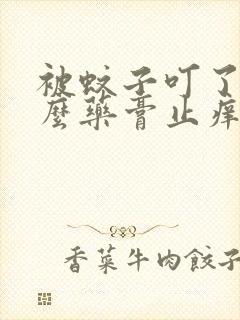 被蚊子叮了
麼藥膏止痒
香菜牛肉餃子